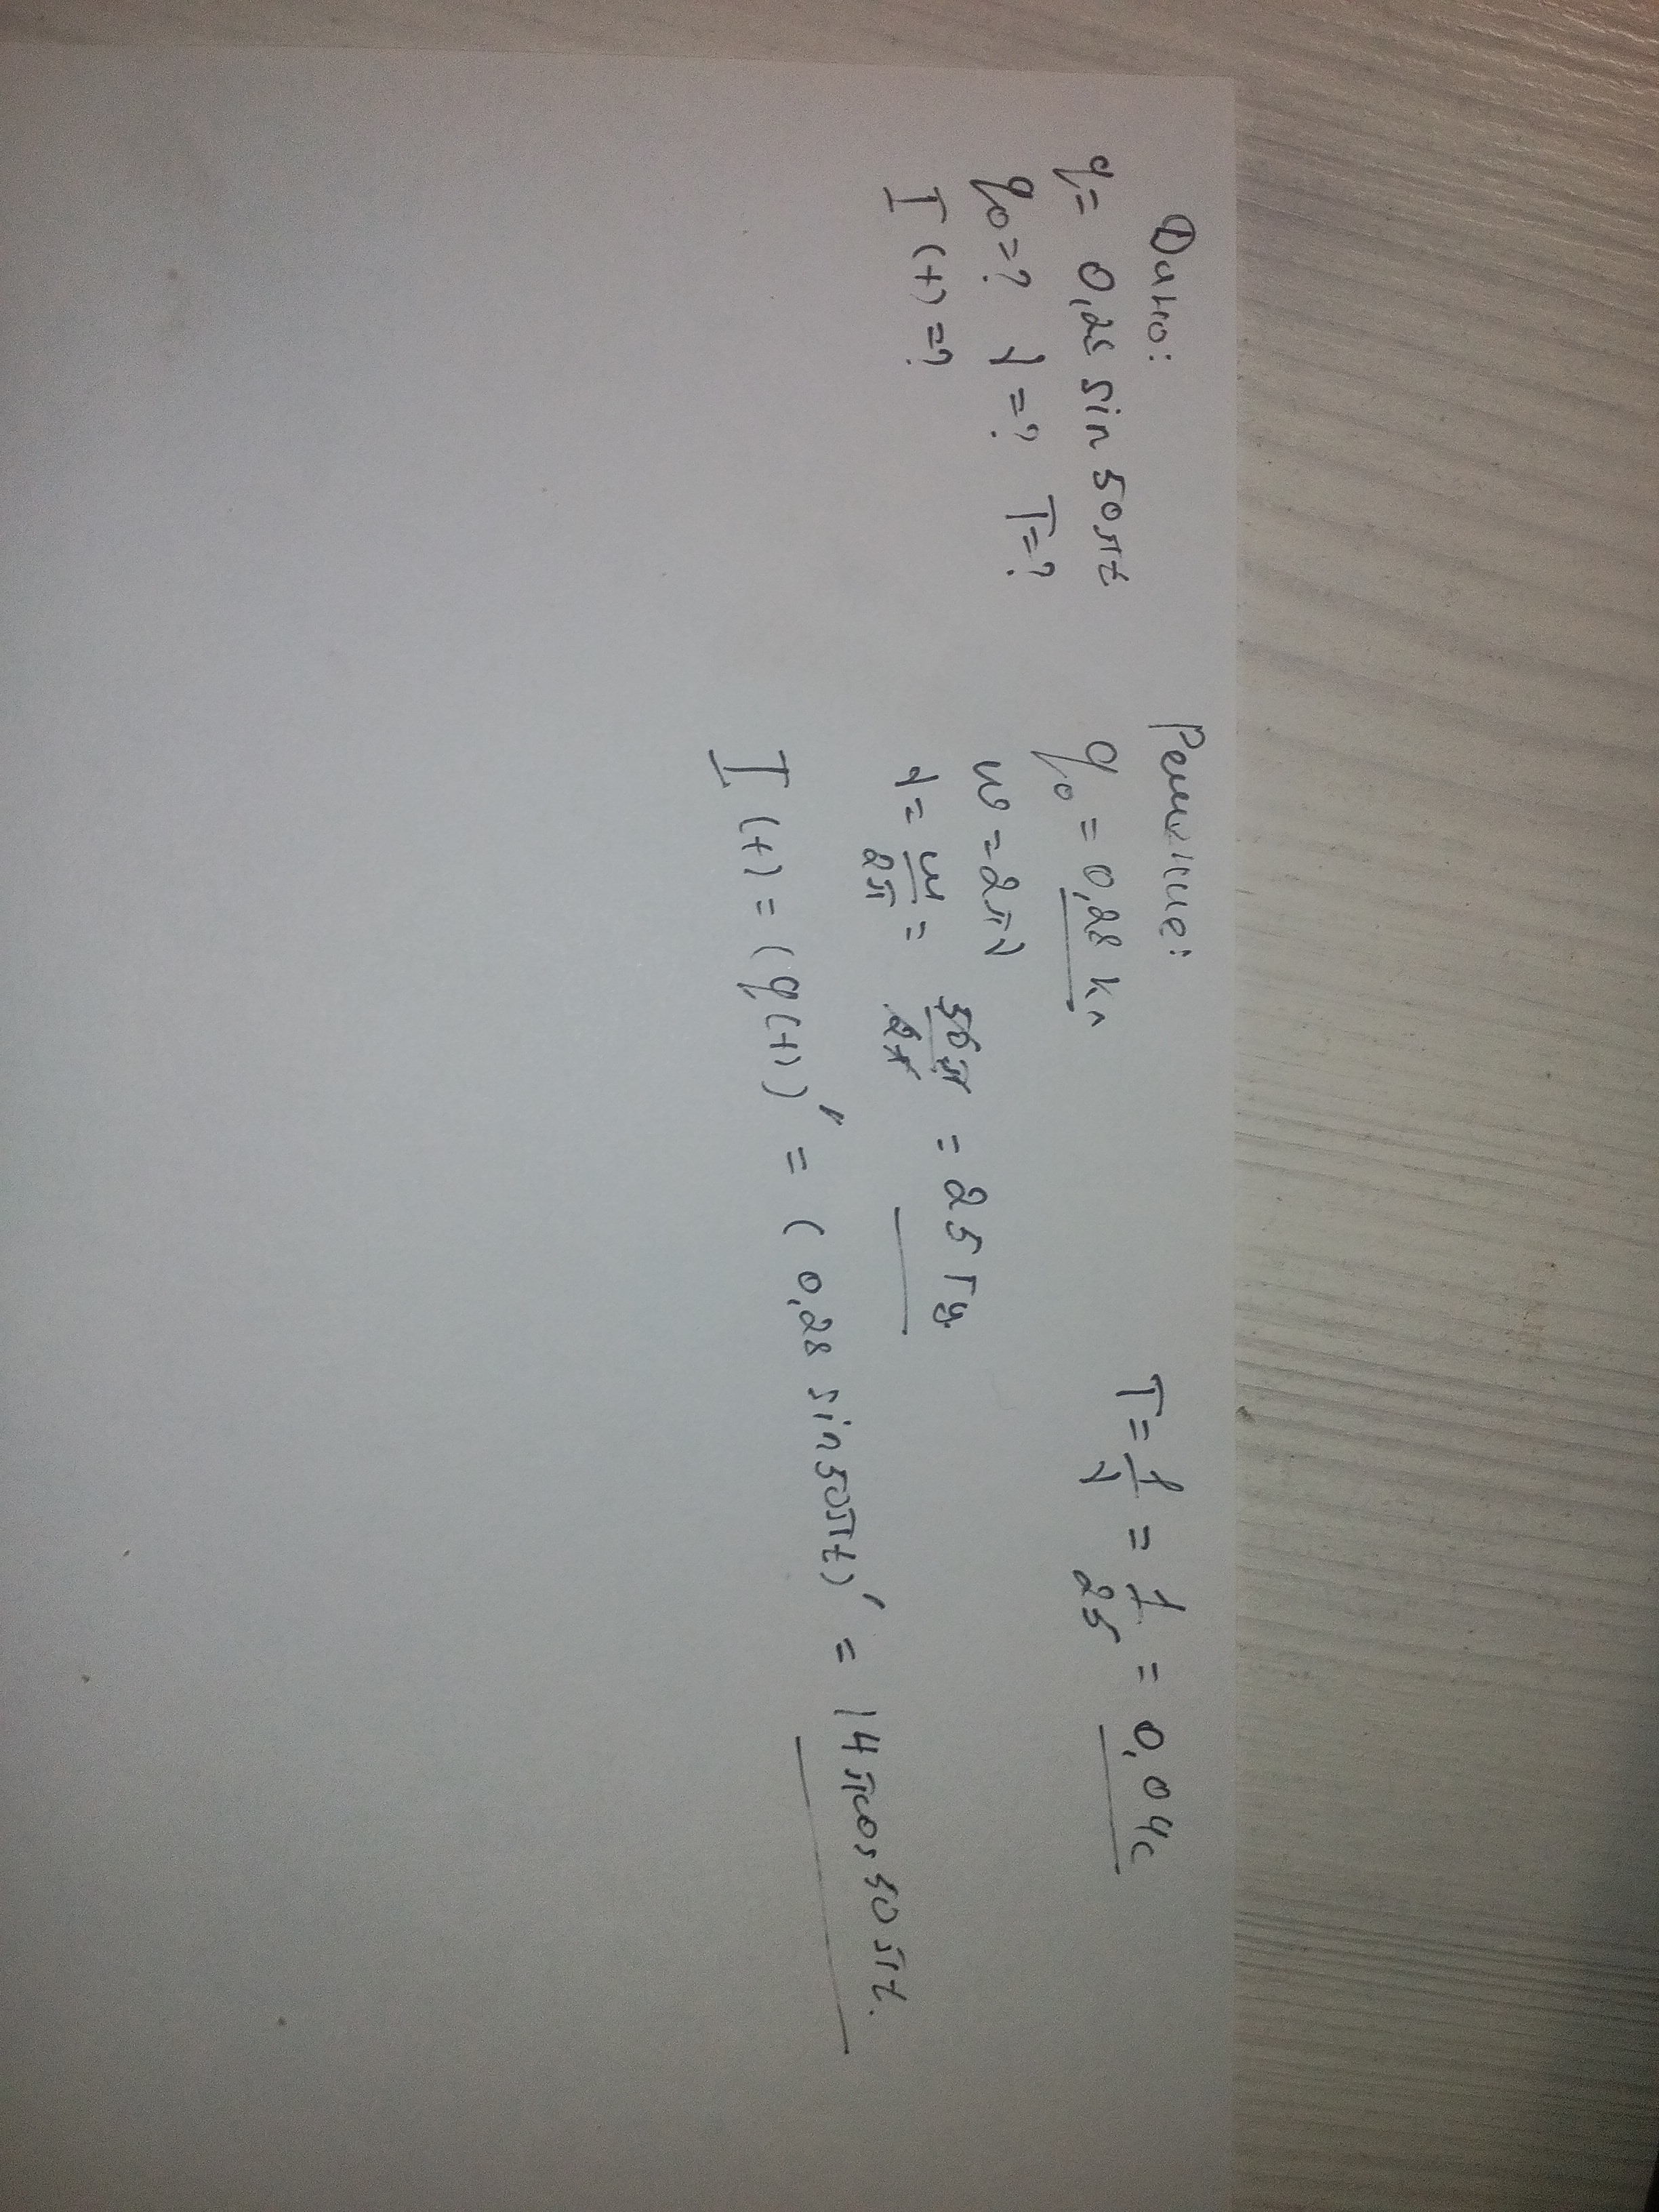 Дано:
q = 0,28 sin 50πt
q₀ = ? ν = ? T = ?
I(t) = ?
Решение:
q₀ = 0,28 Кл
ω = 2πν
ν = ω/2π = 50π/2π = 25 Гц
T = 1/ν = 1/25 = 0,04с
I(t) = (q(t))' = (0,28 sin 50πt)' = 14πcos 50πt.